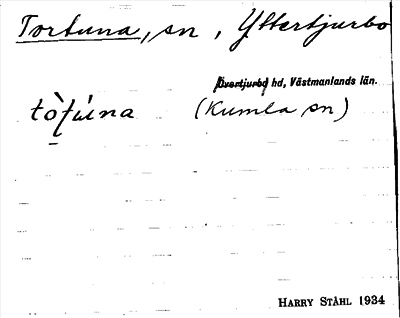 Tortuna, sn , Yttertjurbo
Övertjurbo hd, Västmanlands län.
(Kumla sn)
HARRY STÅHL 1934